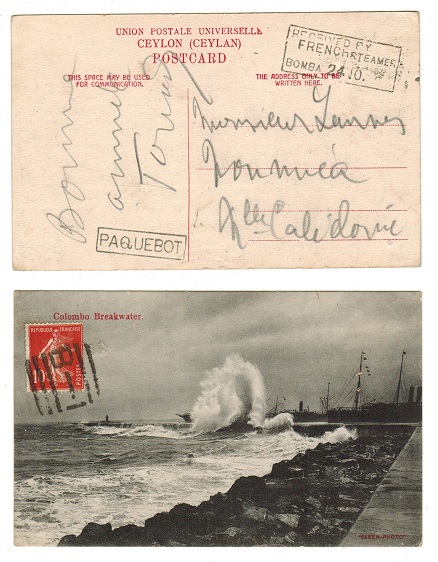 UNION POSTALE UNIVERSELLE
CEYLON (CEYLAN)
POSTCARD
THIS SPACE MAY BE USED
FOR COMMUNICATION.
THE ADDRESS ONLY TO BE
WRITTEN HERE.
RECEIVED BY
FRENCH STEAMER
BOMBA 24 10.
Bonne
année
Monsieur
Nouméa
Nlle Calédonie
PAQUEBOT
Colombo Breakwater.
REPUBLIQUE FRANÇAISE
10
POSTES
B
"SKEEN-PHOTO"